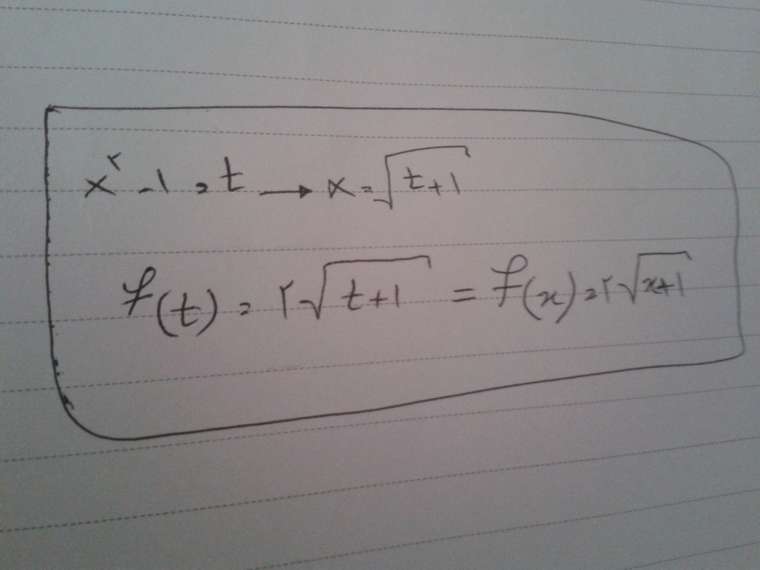 x² - ۱ = t → x = √(t+1)
f(t) = ۲√(t+1) = f(x) = ۲√(x+1)